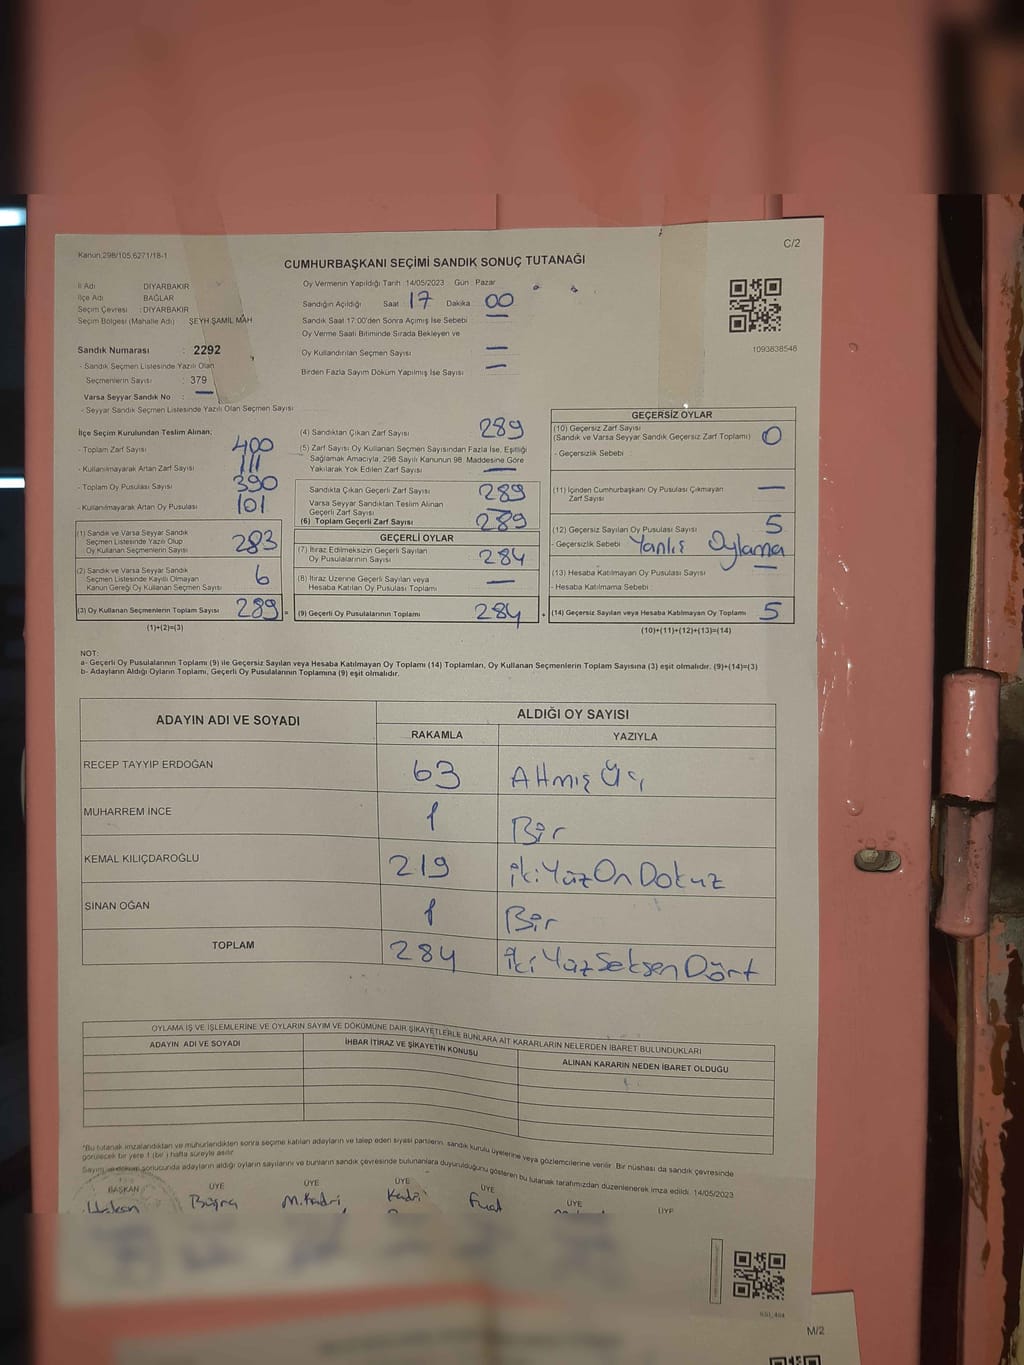 Kanun,298/105,6271/18-1
C/2
CUMHURBAŞKANI SEÇİMİ SANDIK SONUÇ TUTANAĞI
İl Adı DİYARBAKIR
İlçe Adı BAĞLAR
Seçim Çevresi :DİYARBAKIR
Seçim Bölgesi (Mahalle Adı) ŞEYH ŞAMİL MAH
Sandık Numarası : 2292
- Sandık Seçmen Listesinde Yazılı Olan
Seçmenlerin Sayısı : 379
Varsa Seyyar Sandık No : —
- Seyyar Sandık Seçmen Listesinde Yazılı Olan Seçmen Sayısı
Oy Vermenin Yapıldığı Tarih 14/05/2023 Gün : Pazar
Sandığın Açıldığı Saat 17 Dakika : 00
Sandık Saat 17:00'den Sonra Açılmış İse Sebebi —
Oy Verme Saati Bitiminde Sırada Bekleyen ve
Oy Kullandırılan Seçmen Sayısı —
Birden Fazla Sayım Döküm Yapılmış İse Sayısı —
1093838546
İlçe Seçim Kurulundan Teslim Alınan;
- Toplam Zarf Sayısı 400
- Kullanılmayarak Artan Zarf Sayısı 111
- Toplam Oy Pusulası Sayısı 390
- Kullanılmayarak Artan Oy Pusulası 101
(1) Sandık ve Varsa Seyyar Sandık
Seçmen Listesinde Yazılı Olup
Oy Kullanan Seçmenlerin Sayısı 283
(2) Sandık ve Varsa Seyyar Sandık
Seçmen Listesinde Kayıtlı Olmayan
Kanun Gereği Oy Kullanan Seçmen Sayısı 6
(3) Oy Kullanan Seçmenlerin Toplam Sayısı 289 =
(1)+(2)=(3)
(4) Sandıktan Çıkan Zarf Sayısı 289
(5) Zarf Sayısı Oy Kullanan Seçmen Sayısından Fazla İse, Eşitliği
Sağlamak Amacıyla, 298 Sayılı Kanunun 98. Maddesine Göre
Yakılarak Yok Edilen Zarf Sayısı —
Sandıkta Çıkan Geçerli Zarf Sayısı 289
Varsa Seyyar Sandıktan Teslim Alınan
Geçerli Zarf Sayısı —
(6) Toplam Geçerli Zarf Sayısı 289
GEÇERLİ OYLAR
(7) İtiraz Edilmeksizin Geçerli Sayılan
Oy Pusulalarının Sayısı 284
(8) İtiraz Üzerine Geçerli Sayılan veya
Hesaba Katılan Oy Pusulası Toplamı —
(9) Geçerli Oy Pusulalarının Toplamı 284 +
GEÇERSİZ OYLAR
(10) Geçersiz Zarf Sayısı
(Sandık ve Varsa Seyyar Sandık Geçersiz Zarf Toplamı) 0
- Geçersizlik Sebebi :
(11) İçinden Cumhurbaşkanı Oy Pusulası Çıkmayan
Zarf Sayısı —
(12) Geçersiz Sayılan Oy Pusulası Sayısı 5
- Geçersizlik Sebebi Yanlış Oylama
(13) Hesaba Katılmayan Oy Pusulası Sayısı —
- Hesaba Katılmama Sebebi
(14) Geçersiz Sayılan veya Hesaba Katılmayan Oy Toplamı 5
(10)+(11)+(12)+(13)=(14)
NOT:
a- Geçerli Oy Pusulalarının Toplamı (9) ile Geçersiz Sayılan veya Hesaba Katılmayan Oy Toplamı (14) Toplamları, Oy Kullanan Seçmenlerin Toplam Sayısına (3) eşit olmalıdır. (9)+(14)=(3)
b- Adayların Aldığı Oyların Toplamı, Geçerli Oy Pusulalarının Toplamına (9) eşit olmalıdır.
ADAYIN ADI VE SOYADI
ALDIĞI OY SAYISI
RAKAMLA YAZIYLA
RECEP TAYYIP ERDOĞAN 63 Altmış Üç
MUHARREM İNCE 1 Bir
KEMAL KILIÇDAROĞLU 219 İkiYüzOnDokuz
SİNAN OĞAN 1 Bir
TOPLAM 284 İkiYüzSeksenDört
OYLAMA İŞ VE İŞLEMLERİNE VE OYLARIN SAYIM VE DÖKÜMÜNE DAİR ŞİKAYETLERLE BUNLARA AİT KARARLARIN NELERDEN İBARET BULUNDUKLARI
ADAYIN ADI VE SOYADI
İHBAR İTİRAZ VE ŞİKAYETİN KONUSU
ALINAN KARARIN NEDEN İBARET OLDUĞU
*Bu tutanak imzalandıktan ve mühürlendikten sonra seçime katılan adayların ve talep eden siyasi partilerin, sandık kurulu üyelerine veya gözlemcilerine verilir. Bir nüshası da sandık çevresinde
görülecek bir yere 1 (bir ) hafta süreyle asılır.
Sayım ve döküm sonucunda adayların aldığı oyların sayılarını ve bunların sandık çevresinde bulunanlara duyurulduğunu gösteren bu tutanak tarafımızdan düzenlenerek imza edildi. 14/05/2023
BAŞKAN ÜYE ÜYE ÜYE ÜYE ÜYE ÜYE
Hakan Büşra M.Kadri Kadri Fuat
M/2